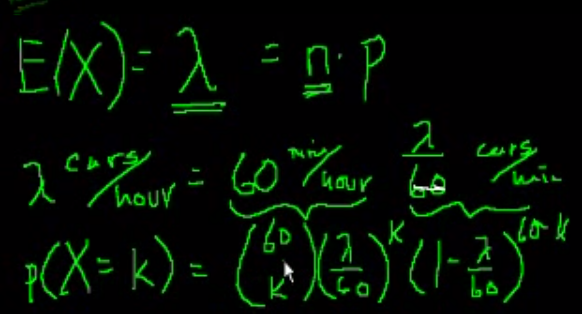 E(X) = λ = n · p
λ cars/hour = 60 min/hour λ/60 cars/min
p(X = k) = (60 k) (λ/60)^k (1 - λ/60)^60-k